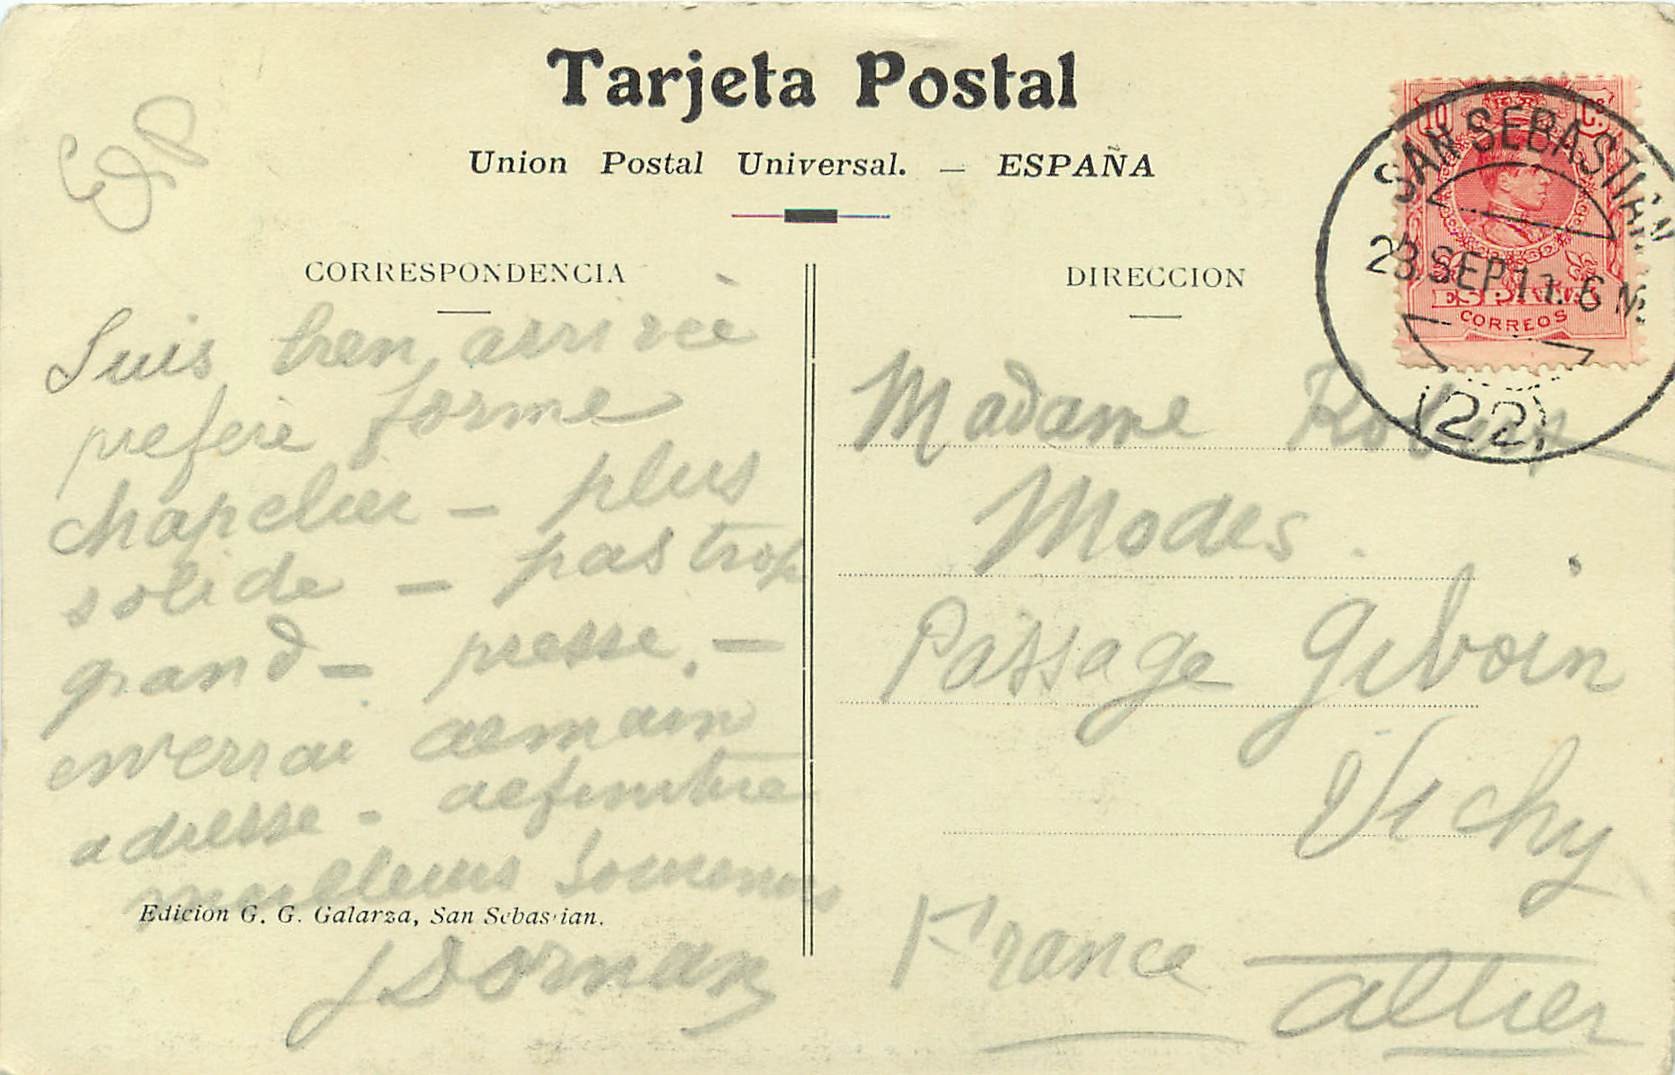 Tarjeta Postal
Union Postal Universal. — ESPAÑA
10 Cs
SAN SEBASTIÁN
23. SEP 11. 6 N.
ESPAÑA
CORREOS
(22)
CORRESPONDENCIA
Suis bien arrivée
préfère forme
chapelier – plus
solide – pas trop
grand – presse. –
enverrai demain
adresse - définitive
meilleurs souvenirs
Edicion G. G. Galarza, San Sebastian.
J Dornan
DIRECCION
Madame
Modes.
Passage Giboin
Vichy
France Allier